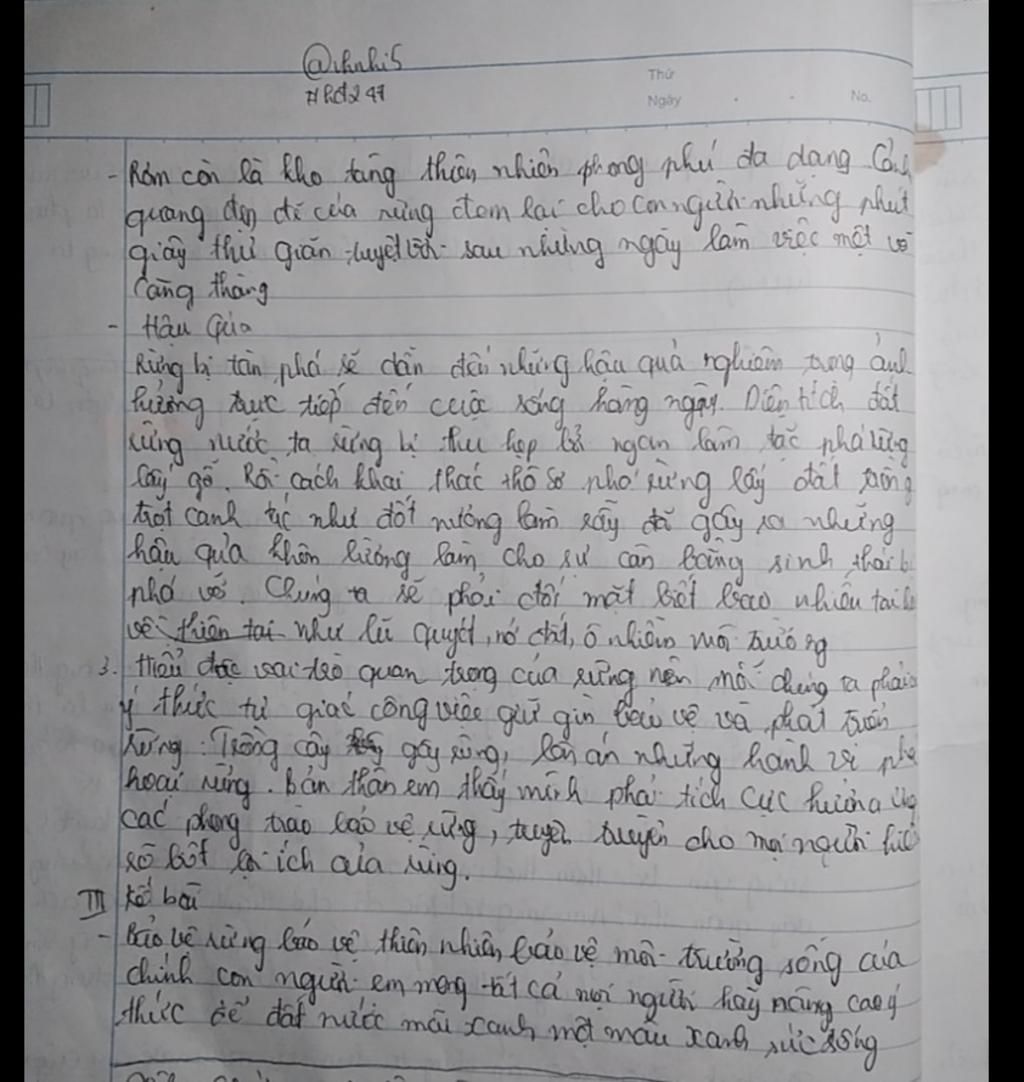 @thnhi5
Thứ
Ngày
No.
- Rừng còn là kho tàng thiên nhiên phong phú đa dạng Cảnh
quang đẹp đẽ của rừng đem lại cho con người những phút
giây thư giãn tuyệt vời sau những ngày làm việc mệt
Căng thẳng
- Hậu Quả
Rừng bị tàn phá sẽ dẫn đến những hậu quả nghiêm trọng ảnh
hưởng trực tiếp đến cuộc sống hàng ngày. Diện tích đất
rừng nước ta rừng bị thu hẹp bởi ngạn lâm tặc phá rừng
lấy gỗ. Rồi cách khai thác thô sơ phá rừng lấy đất trồng
trọt canh tác như đốt nương làm rẫy đã gây ra những
hậu quả khôn lường làm cho sự cân bằng sinh thái bị
phá vỡ. Chúng ta sẽ phải đối mặt biết bao nhiêu
về thiên tai như lũ quyét, nở đất, ô nhiễm môi trường
3. Hiểu được vai trò quan trọng của rừng nên mỗi chúng ta phải
ý thức tự giác công việc giữ gìn bảo vệ và phát triển
rừng. Trồng cây gây rừng, lên án những hành vi phá
hoại rừng. bản thân em thấy mình phải tích cực hưởng ứng
các phong trào bảo vệ rừng, tuyên truyền cho mọi người hiểu
rõ lợi ích của rừng.
III Kết bài
- Bảo vệ rừng bảo vệ thiên nhiên bảo vệ môi trường sống của
chính con người em mong tất cả mọi người hãy nâng cao ý
thức để đất nước mãi xanh một màu xanh sức sống